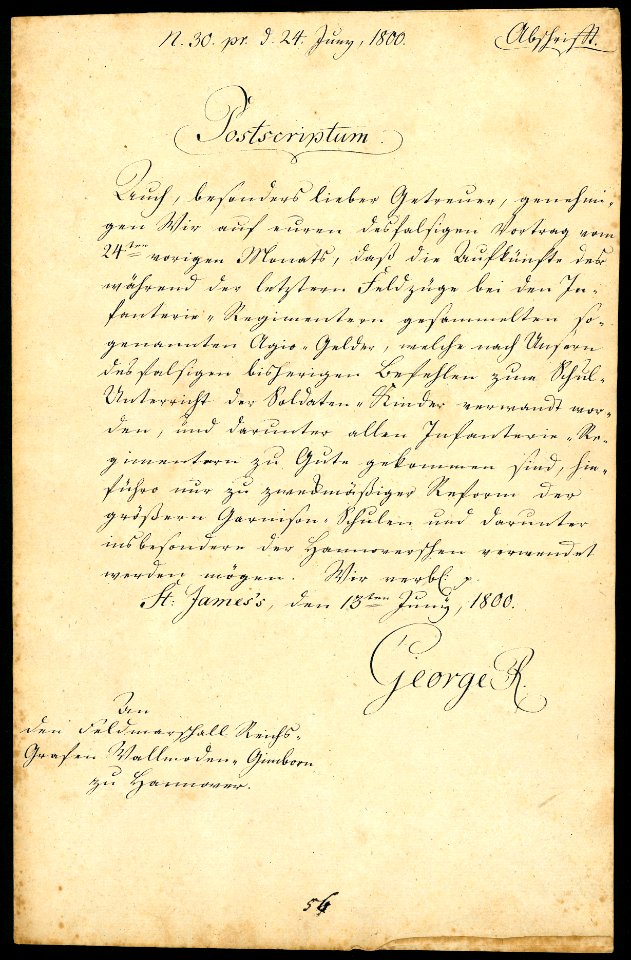 N. 30. pr. d. 24. Juny, 1800.
Abschrifft.
Postscriptum.
Auch, besonders lieber Getreuer, genehmi-
gen Wir auf euren desfalsigen Vortrag vom
24ten vorigen Monats, daß die Aufkünfte der
während der letztern Feldzüge bei den In-
fanterie-Regimentern gesammelten so-
genannten Agio-Gelder, welche nach Unsern
desfalsigen bisherigen Befehlen zum Schul-
Unterricht der Soldaten-Kinder verwandt wor-
den, und darunter allen Infanterie-Re-
gimentern zu Gute gekommen sind, hin-
führo nur zu zweckmäßiger Reform der
größern Garnison-Schulen und darunter
insbesondere der Hannoverschen verwendet
werden mögen. Wir verbl: p.
St: James's, den 13ten Juny, 1800.
George R.
An
den Feldmarschall Reichs-
Grafen Wallmoden-Gimborn
zu Hannover.
54